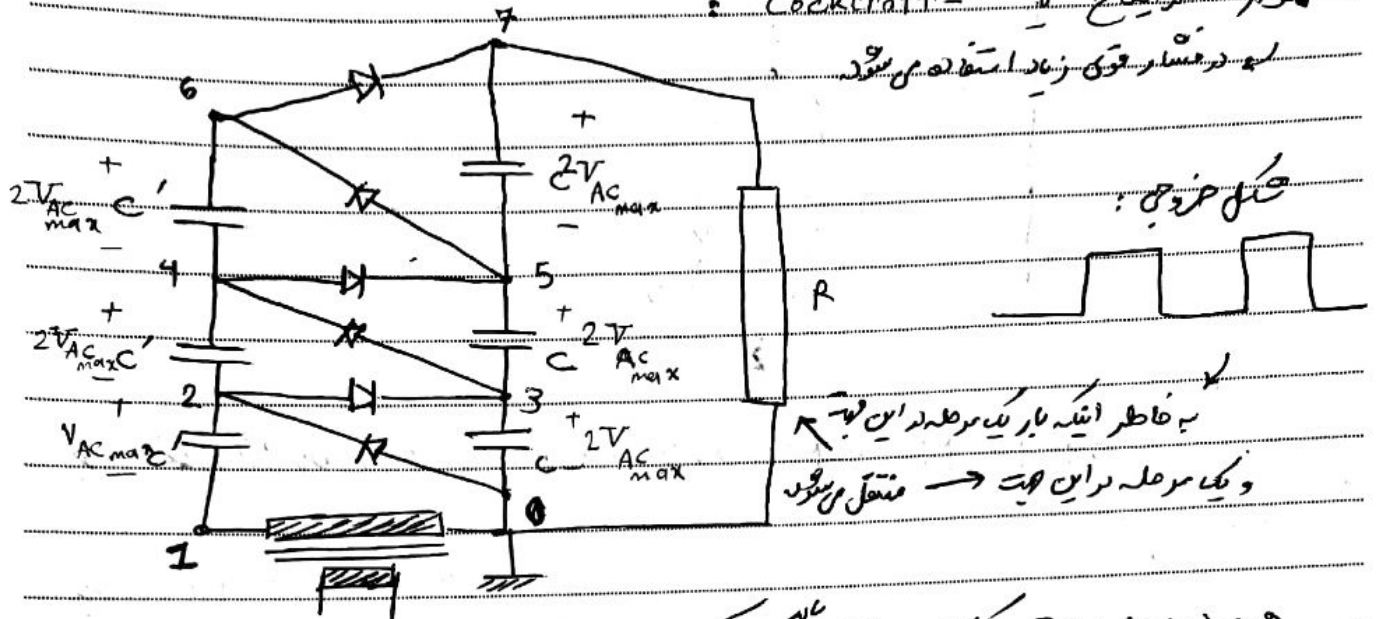 : Cockcroft-
در فشار قوی زیاد استفاده می شود.
7
6
+
2V AC max
C
-
+
2V AC max
C'
-
شکل خروجی :
4
5
R
+
2V AC max
C'
-
+
2V AC max
C
2
3
+
V AC max
C
-
+
2V AC max
C
-
به خاطر اینکه بار یک مرحله در این جهت
و یک مرحله در این جهت → منتقل می شود
0
1